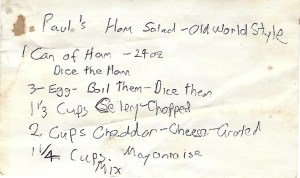 Paul's Ham Salad - Old World Style
1 Can of Ham - 24oz
Dice the Ham
3 - Egg - Boil Them - Dice them
1 1/3 Cups Celery - Chopped
2 Cups Cheddar - Cheese - Grated
1 1/4 Cups. Mayonnaise
Mix